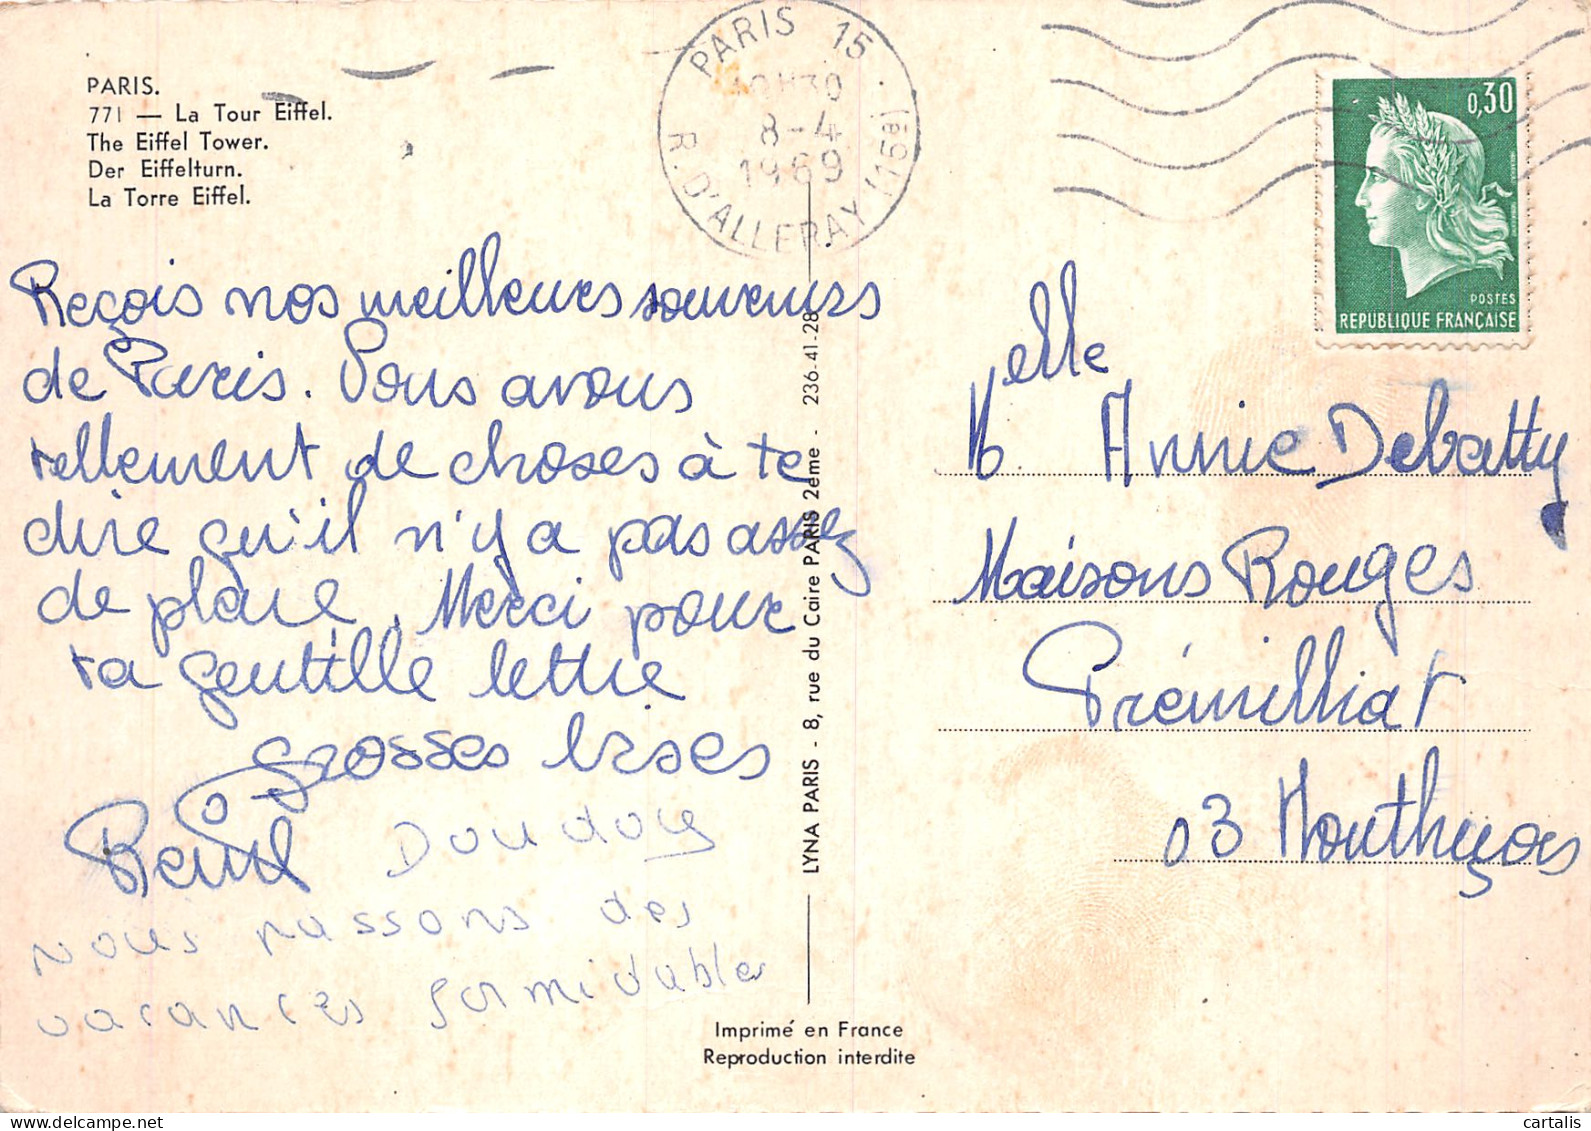 PARIS.
771 — La Tour Eiffel.
The Eiffel Tower.
Der Eiffelturn.
La Torre Eiffel.
PARIS 15
8-4
1969
R. D'ALLERAY (15è)
0,30
POSTES
REPUBLIQUE FRANÇAISE
Reçois nos meilleurs souvenirs
de Paris. Nous avons
tellement de choses à te
dire qu'il n'y a pas assez
de place. Merci pour
ta gentille lettre
Grosses bises
Doudou
nous passons des
vacances formidables
LYNA PARIS - 8, rue du Caire PARIS 2ème - 236-41-28
Imprimé en France
Reproduction interdite
Melle
Annie Debatty
Maisons Rouges
Prémilliat
03 Monthuçon
cartalis
delcampe.net